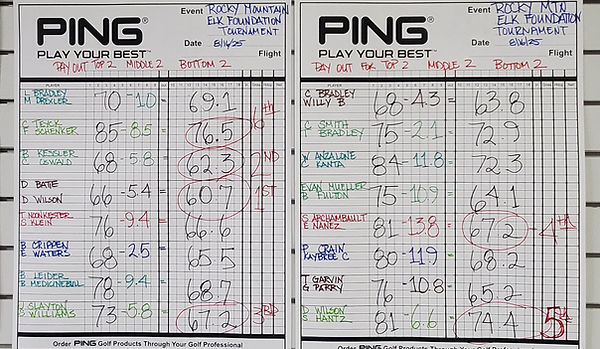 PING®
PLAY YOUR BEST™
Event ROCKY MOUNTAIN
ELK FOUNDATION
TOURNAMENT
Date 8/16/25
Flight
PAY OUT TOP 2 MIDDLE 2 BOTTOM 2
L BRADLEY
M DREXLER 70 -1.0 = 69.1
C TEYCK
F SCHENKER 85 - 8.5 76.5 6TH
B KESSLER
C OSWALD 68 - 5.8 62.3 2ND
D BATIE
D WILSON 66 - 5.4 60.7 1ST
T NONKESTER
S KLEIN 76 -9.4 = 66.6
B CRIPPEN
E WATERS 68 - 2.5 65.5
B LEIDER
B MEDICINEBULL 78 - 9.4 = 68.7
J SLAYTON
S WILLIAMS 73 - 5.8 67.2 3RD
Order PING Golf Products Through Your Golf Professional
PING®
PLAY YOUR BEST™
Event ROCKY MTN
ELK FOUNDATION
TOURNAMENT
Date 8/16/25
Flight
PAY OUT FOR TOP 2 MIDDLE 2 BOTTOM 2
PLAYER
C BRADLEY
WILLY B 68 - 4.3 = 63.8
C SMITH
T BRADLEY 75 - 2.1 = 72.9
W ANZALONE
C KANTA 84 - 11.8 = 72.3
EVAN MUELLER
B FULTON 75 - 10.9 = 64.1
S ARCHAMBAULT
E NANEZ 81 - 13.8 = 67.2 - 4TH
P CRAIN
KAYBREE C 80 - 11.9 = 68.2
T GARVIN
G PARRY 76 - 10.8 = 65.2
D WILSON
S HANTZ 81 - 6.6 = 74.4 5TH
Order PING Golf Products Through Your Golf Professional